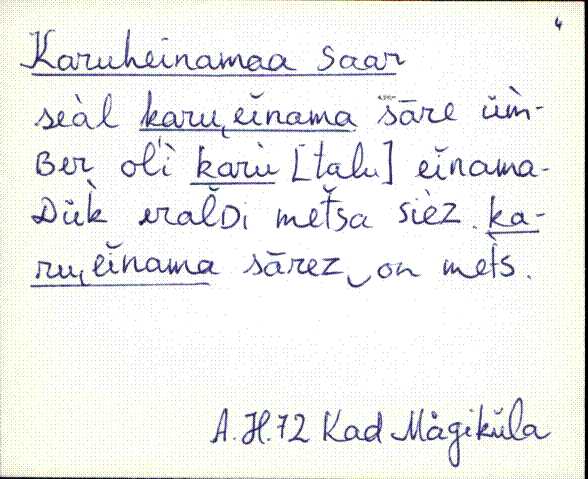 4
Karuheinamaa saar
seàl karu‿eĭnama sāre ùm-
Ber ol'i karù [talu] eĭnama-
Dùk eralDi metsa sièz. ka-
ru‿eĭnama sārez‿on mets.
A.H.72 Kad Mägiküla